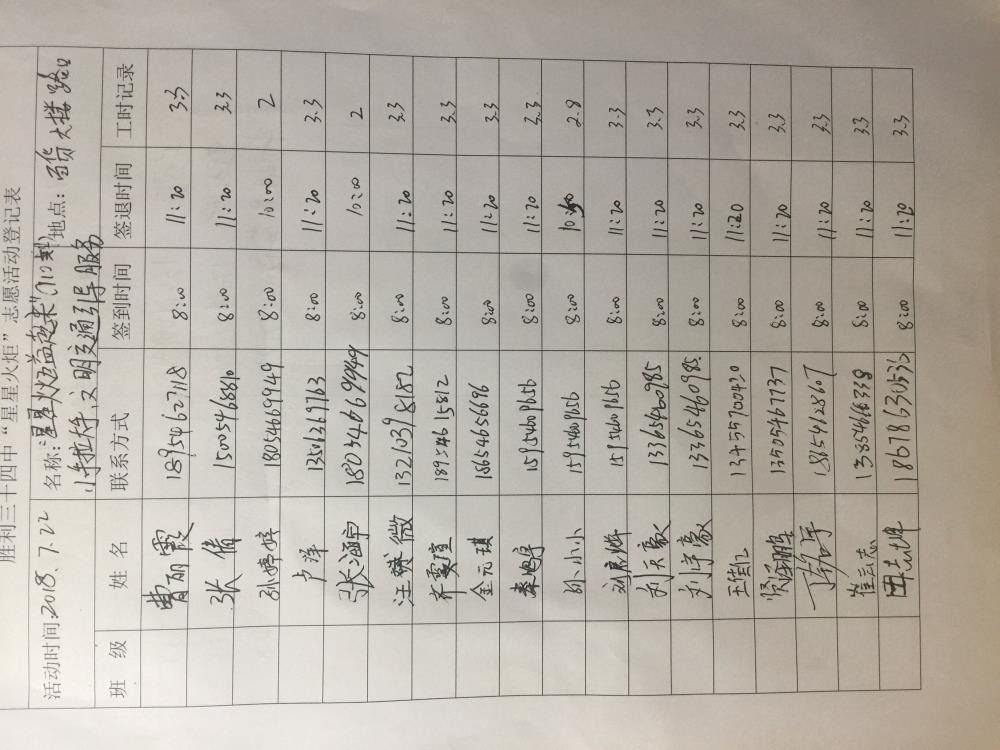 胜利三十四中“星星火炬”志愿活动登记表
活动时间:2018.7.22 名称:星星火炬益起来"(7.10新) 地点:百货大楼路口
小手拉大手,文明交通引导服务
班 级 姓 名 联系方式 签到时间 签退时间 工时记录
曹丽霞 18954627118 8:00 11:20 3.3
张倩 15005468810 8:00 11:20 3.3
孙婷婷 18054669949 8:00 10:00 2
卢洋 13506269763 8:00 11:20 3.3
张涵宇 18054669949 8:00 10:00 2
汪赟薇 13210398182 8:00 11:20 3.3
齐雯瑄 18954615812 8:00 11:20 3.3
金元琪 18654656696 8:00 11:20 3.3
秦旭序 15954609656 8:00 11:20 3.3
孙小小 15954609656 8:00 10:50 2.8
15954609656 8:00 11:20 3.3
刘天豪 13365460985 8:00 11:20 3.3
刘宇豪 13365460985 8:00 11:20 3.3
王佳仪 13455700420 8:00 11:20 3.3
鹏 13505467737 8:00 11:20 3.3
18154128407 8:00 11:20 3.3
崔云志 13854666338 8:00 11:20 3.3
田志坤 18678630535 8:00 11:20 3.3